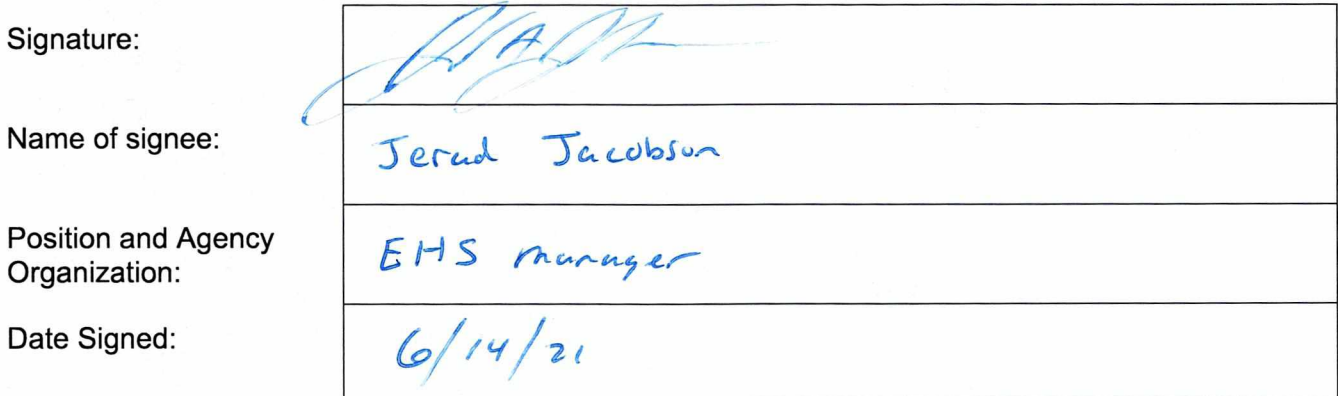 Signature:
Name of signee:
Jerad Jacobson
Position and Agency
Organization:
EHS manager
Date Signed:
6/14/21